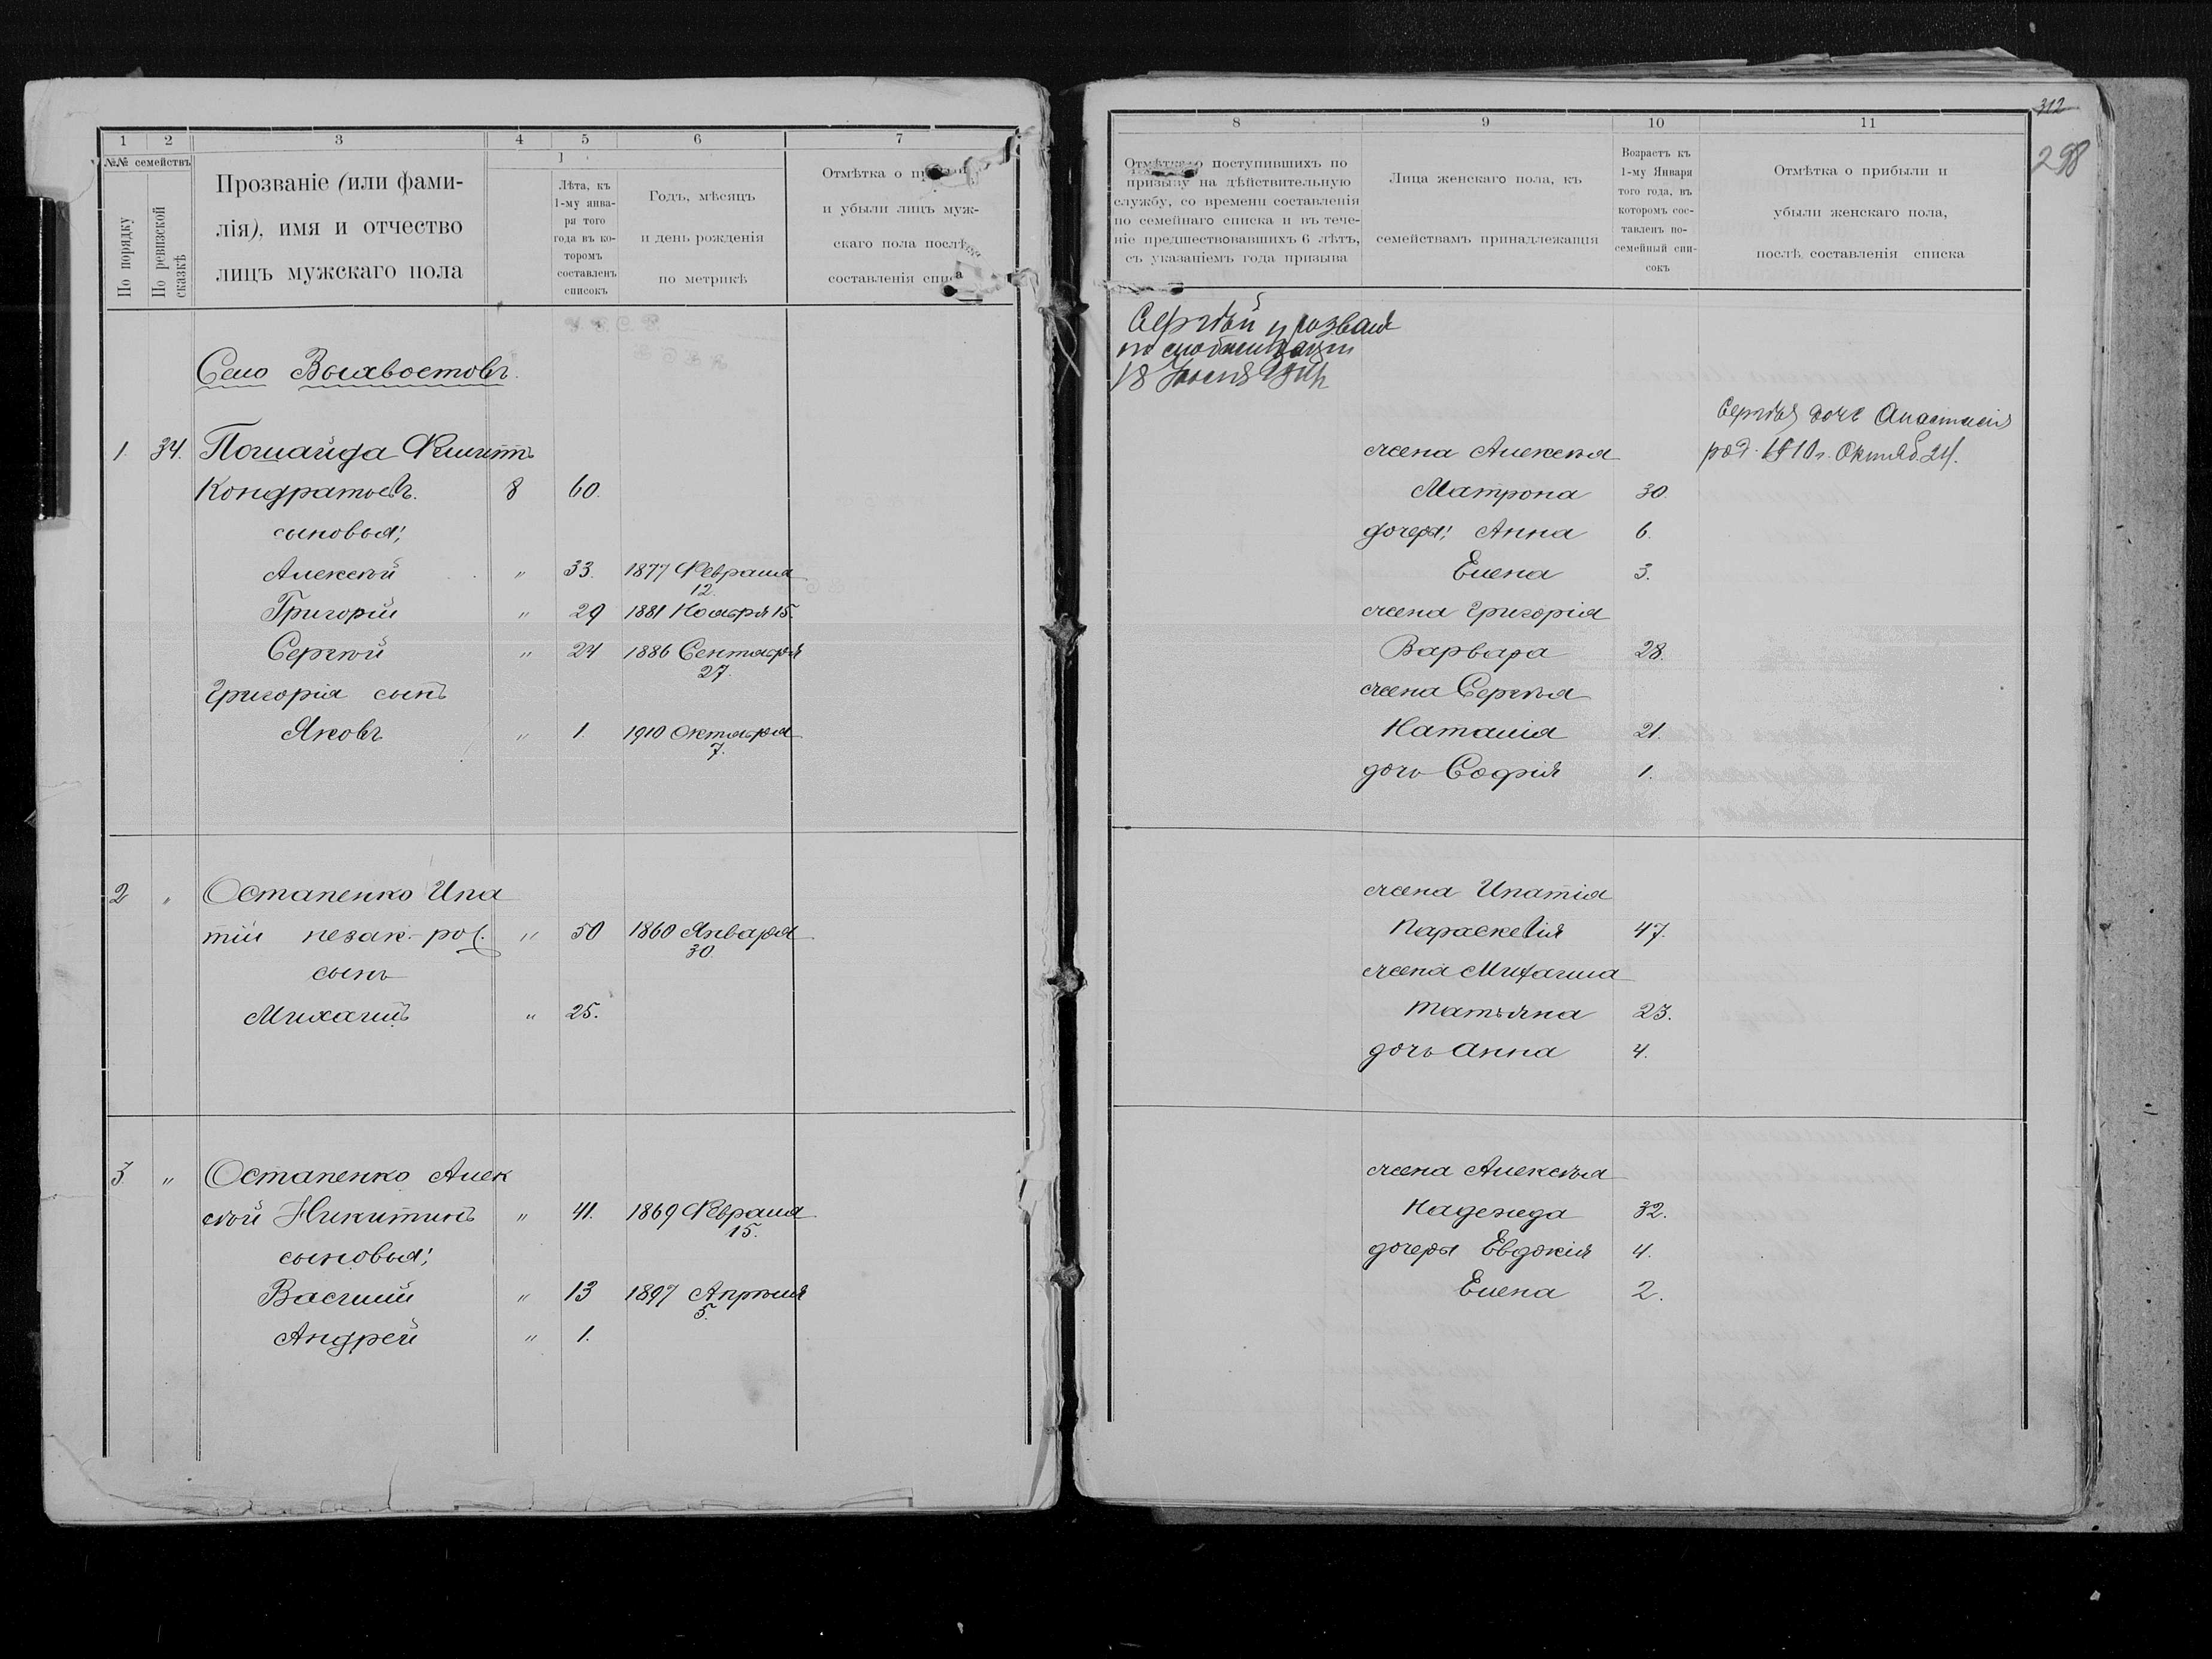 1 2 3 4 5 6 7
№№ семействъ
По порядку
По ревизской сказкѣ
Прозваніе (или фами-
лія), имя и отчество
лицъ мужскаго пола
Лѣта, къ
1-му янва-
ря того
года въ ко-
торомъ
составленъ
списокъ
Годъ, мѣсяцъ
и день рожденія
по метрикѣ
Отмѣтка о
и убыли лицъ муж-
скаго пола послѣ
составленія списка
Село Выхвостовъ.
1. 34. Пошайда Филиппъ
Кондратовъ. 8 60.
сыновья:
Алексѣй " 33. 1877 Февраля
12.
Григорій " 29 1881 Ноября 15.
Сергѣй " 24 1886 Сентября
27.
Григорія сынъ
Яковъ " 1. 1910 Октября
7.
2 " Остапенко Ипа
тій незак. рож. " 50 1860 Января
30.
сынъ
Михаилъ " 25.
3. " Остапенко Алек
сѣй Никитинъ " 41. 1869 Февраля
15.
сыновья:
Василій " 13 1897 Апрѣля
5.
Андрей " 1.
312
298
8 9 10 11
Отмѣтка о поступившихъ по
призыву на дѣйствительную
службу, со времени составленія
по семейнаго списка и въ тече-
ніе предшествовавшихъ 6 лѣтъ,
съ указаніемъ года призыва
Лица женскаго пола, къ
семействамъ принадлежащія
Возрастъ къ
1-му Января
того года, въ
которомъ сос-
тавленъ по-
семейный спи-
сокъ
Отмѣтка о прибыли и
убыли женскаго пола,
послѣ составленія списка
Сергѣй призванъ
по мобилизаціи
18 Іюля
Сергѣя дочь Анастасія
род. 1910 г. Октяб. 24.
жена Алексѣя
Матрона 30.
дочери: Анна 6.
Елена 3.
жена Григорія
Варвара 28.
жена Сергѣя
Наталія 21.
дочь Софія 1.
жена Ипатія
Параскевія 47.
жена Михаила
Татьяна 23.
дочь Анна 4.
жена Алексѣя
Надежда 32.
дочери Евдокія 4.
Елена 2.